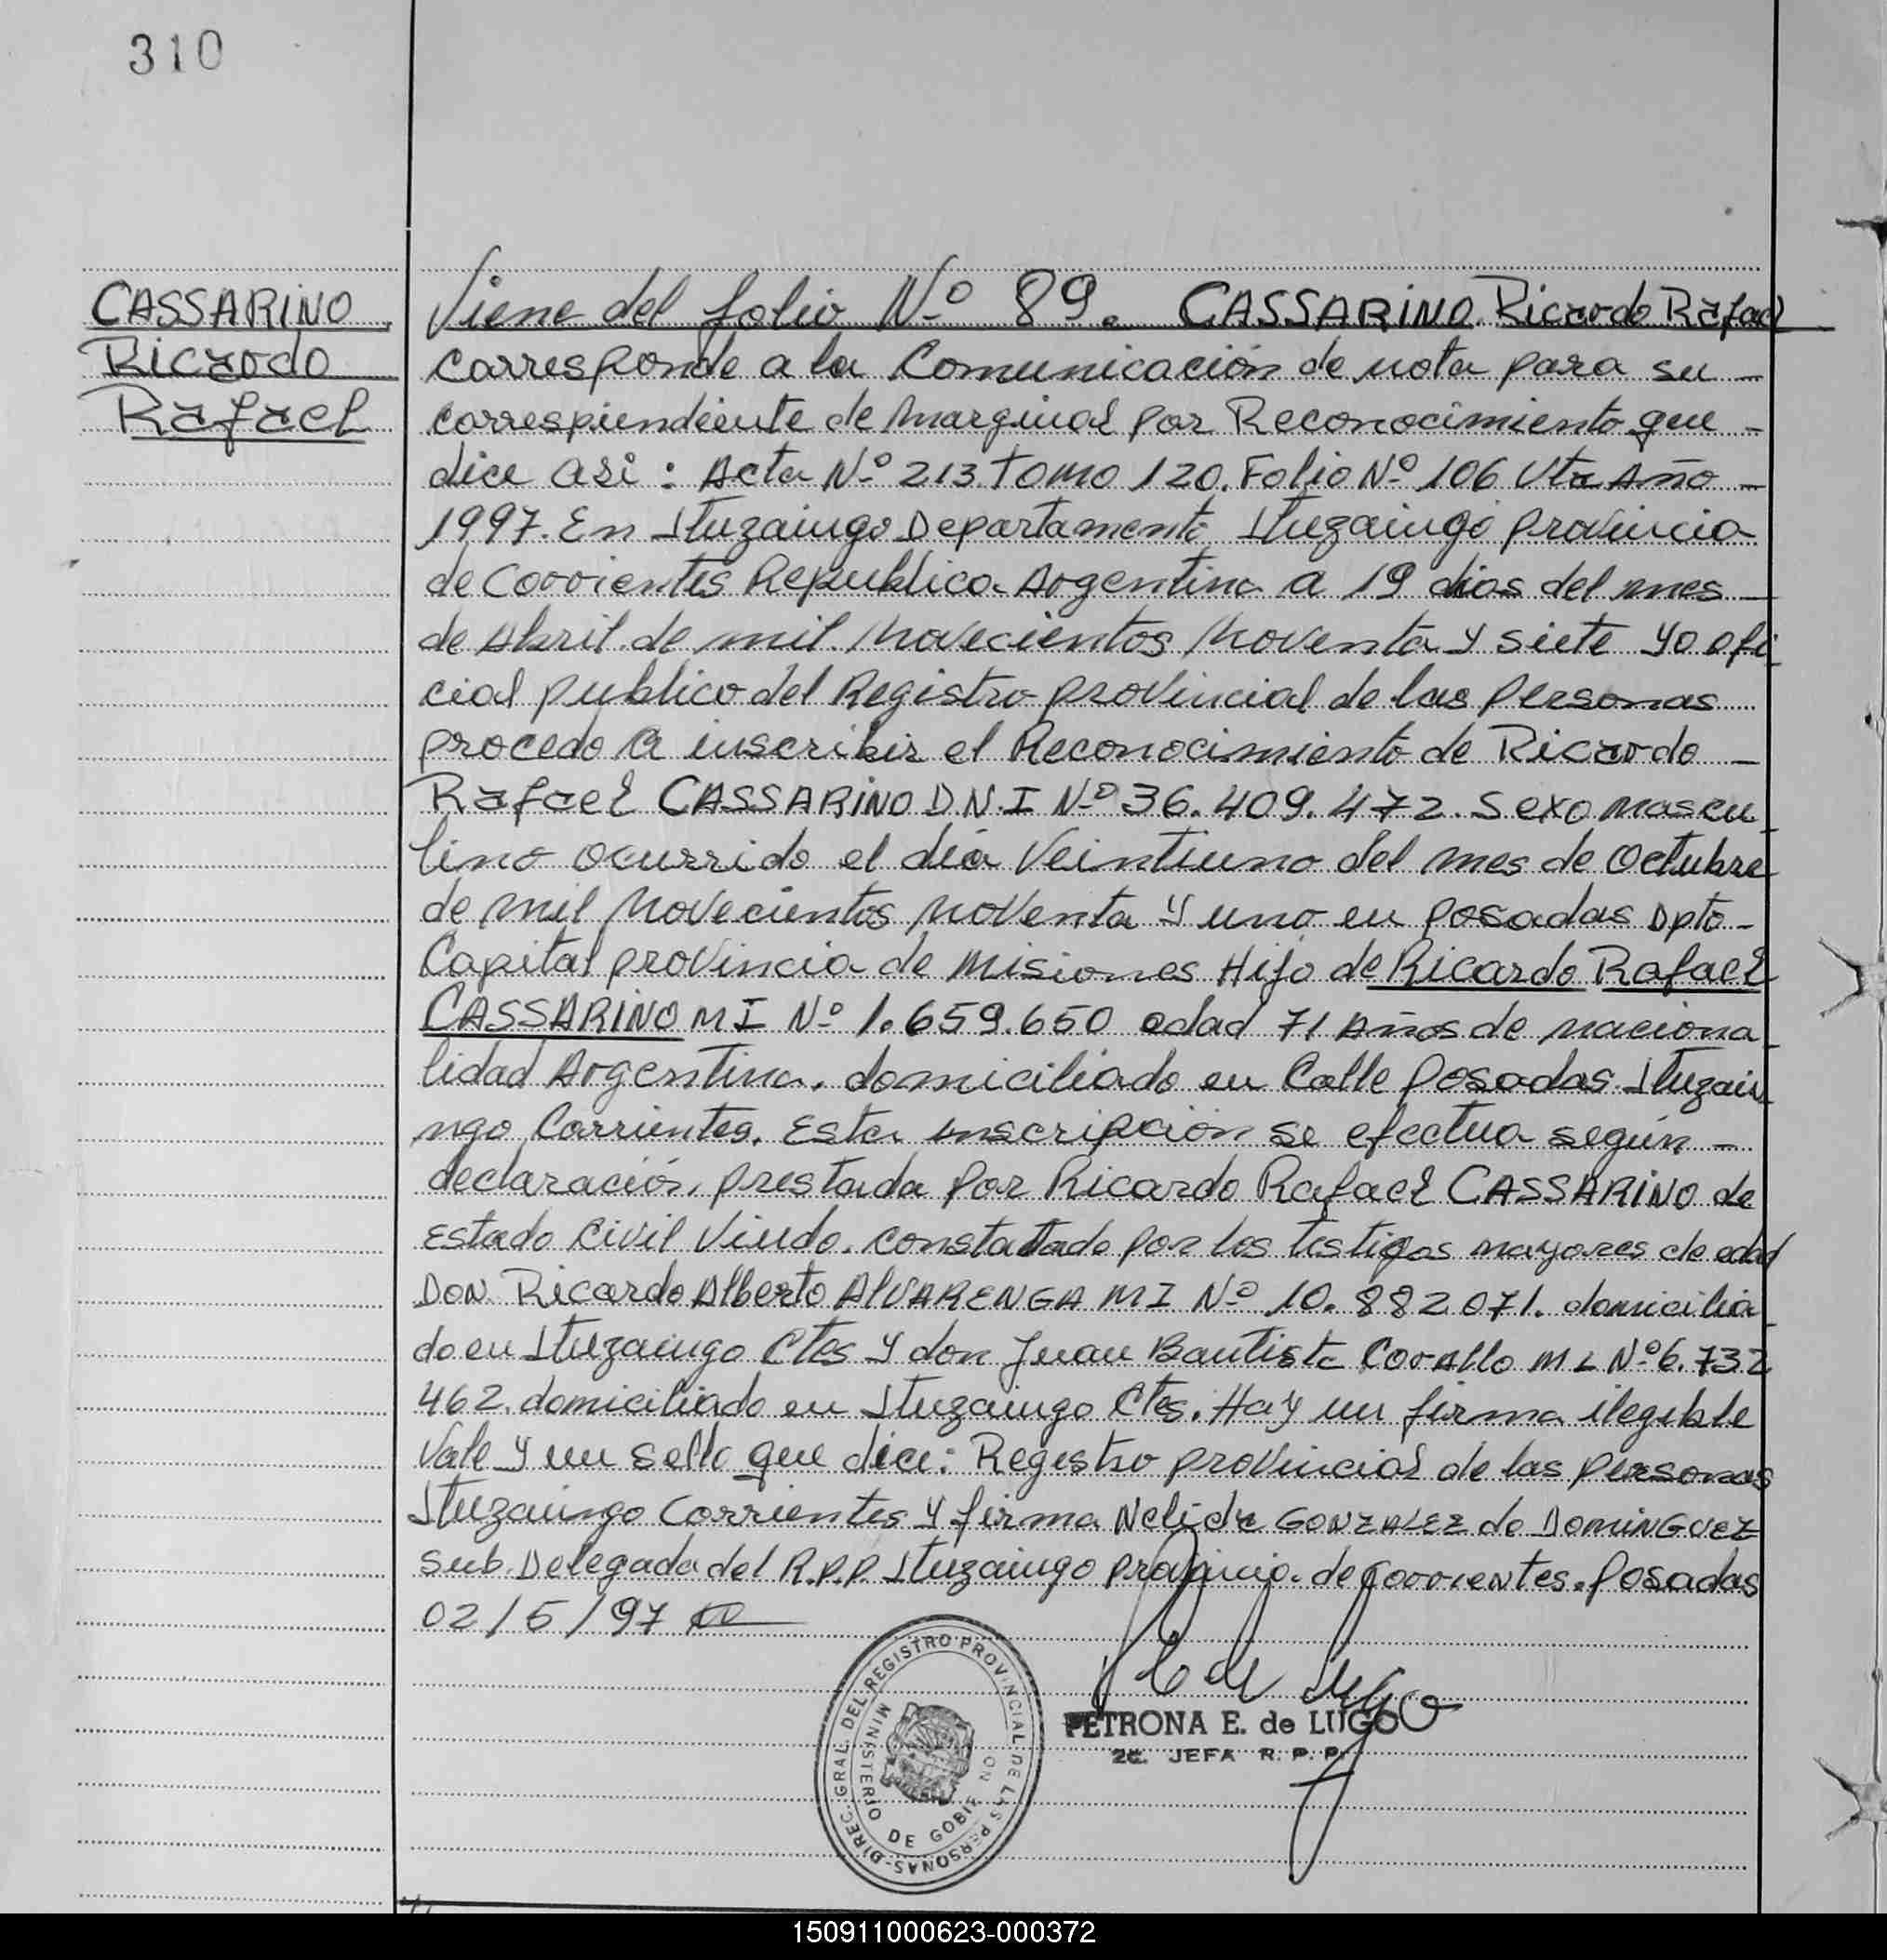 310
CASSARINO
Ricardo
Rafael
Viene del folio Nº 89. CASSARINO Ricardo Rafael
corresponde a la Comunicación de nota para su -
correspiendeinte de marginal por Reconocimiento que -
dice asi: Acta Nº 213 Tomo 120. Folio Nº 106 Vta Año -
1997. En Ituzaingo Departamento Ituzaingo provincia
de Corrientes Republica Argentina a 19 dias del mes -
de Abril de mil novecientos noventa y siete yo ofi-
cial publico del Registro provincial de las personas
procedo a inscribir el Reconocimiento de Ricardo -
Rafael CASSARINO D.N.I Nº 36.409.472. Sexo mascu-
lino ocurrido el dia veintiuno del mes de Octubre
de mil novecientos noventa y uno en posadas Dpto -
Capital provincia de misiones Hijo de Ricardo Rafael
CASSARINO M I Nº 1.659.650 edad 71 Años de naciona-
lidad Argentina. domiciliado en Calle posadas Ituzai-
ngo Corrientes. Esta inscripción se efectua según -
declaración, prestada por Ricardo Rafael CASSARINO de
Estado Civil Viudo. constatado por los testigos mayores de edad
DON Ricardo Alberto ALVARENGA M I Nº 10.882071. domicilia-
do en Ituzaingo Ctes y don Juan Bautista Corallo M I Nº 6.732
462. domiciliado en Ituzaingo Ctes. Hay un firma ilegible
Vale y un sello que dice: Registro provincial de las personas
Ituzaingo Corrientes y firma Nelida GONZALEZ de DOMINGUEZ
Sub. Delegada del R.P.P. Ituzaingo provincia de Corrientes. Posadas
02/5/97
DIREC. GRAL. DEL REGISTRO PROVINCIAL DE LAS PERSONAS
MINISTERIO DE GOBIERNO
PETRONA E. de LUGO
2a. JEFA R. P. P.
150911000623-000372